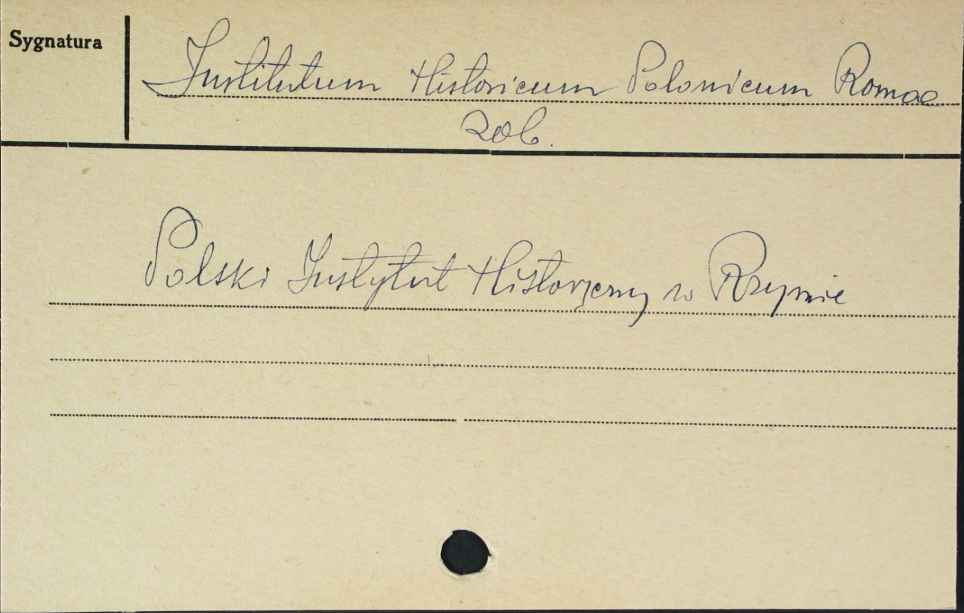 Sygnatura
Institutum Historicum Polonicum Romae
zob.
Polski Instytut Historyczny w Rzymie